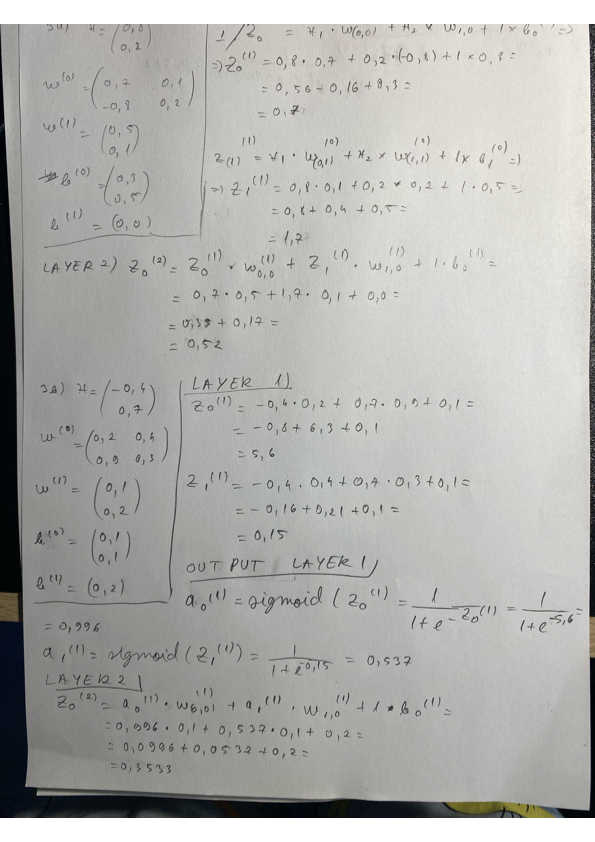 3a) x = (0,8
0,2)
w^(0) = (0,7 0,1
-0,8 0,2)
w^(1) = (0,5
0,1)
b^(0) = (0,3
0,5)
b^(1) = (0,0)
1/ z₀ = x₁ · w(0,0) + x₂ × w₁,₀ + 1 × b₀^(0) =>
=> z₀^(1) = 0,8 · 0,7 + 0,2 · (-0,8) + 1 × 0,3 =
= 0,56 - 0,16 + 0,3 =
= 0,7
z(1)^(1) = x₁ · w(0,1)^(0) + x₂ × w(1,1)^(0) + 1 × b₁^(0) =)
=> z₁^(1) = 0,8 · 0,1 + 0,2 × 0,2 + 1 · 0,5 =
= 0,8 + 0,4 + 0,5 =
= 1,7
LAYER 2) z₀^(2) = z₀^(1) × w₀,₀^(1) + z₁^(1) · w₁,₀^(1) + 1 · b₀^(1) =
= 0,7 · 0,5 + 1,7 · 0,1 + 0,0 =
= 0,35 + 0,17 =
= 0,52
3b) x = (-0,4
0,7)
w^(0) = (0,2 0,4
0,9 0,3)
w^(1) = (0,1
0,2)
b^(0) = (0,1
0,1)
b^(1) = (0,2)
LAYER 1)
z₀^(1) = -0,4 · 0,2 + 0,7 · 0,9 + 0,1 =
= -0,8 + 6,3 + 0,1
= 5,6
z₁^(1) = -0,4 · 0,4 + 0,7 · 0,3 + 0,1 =
= -0,16 + 0,21 + 0,1 =
= 0,15
OUTPUT LAYER 1)
a₀^(1) = sigmoid (z₀^(1) = 1/(1+e^-z₀^(1)) = 1/(1+e^-5,6) =
= 0,996
a₁^(1) = sigmoid (z₁^(1)) = 1/(1+e^-0,15) = 0,537
LAYER 2)
z₀^(2) = a₀^(1) · w(0,0)^(1) + a₁^(1) · w₁,₀^(1) + 1 · b₀^(1) =
= 0,996 · 0,1 + 0,537 · 0,1 + 0,2 =
= 0,0996 + 0,0537 + 0,2 =
= 0,3533